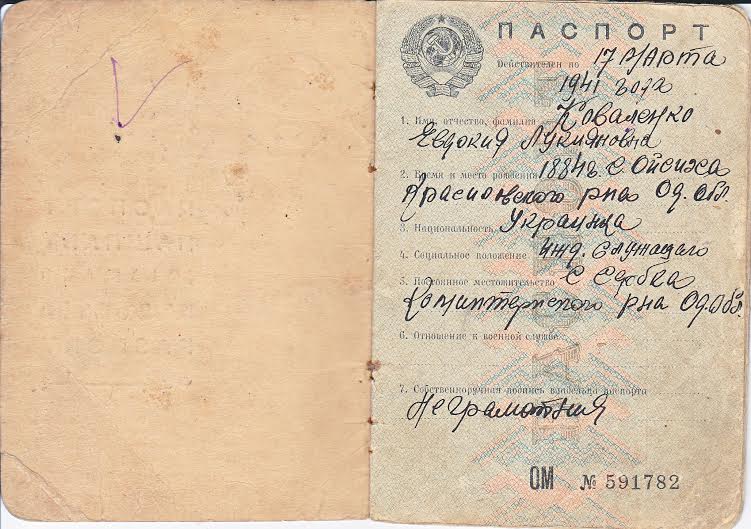 ПАСПОРТ
Действителен по 17 Марта
1941 года
1. Имя, отчество, фамилия Коваленко
Евдокия Лукияновна
2. Время и место рождения 1884г. с.
района Од. обл.
3. Национальность Украинка
4. Социальное положение ижд. служащего
5. Постоянное местожительство с. Сербка
Коминтерновского рна Од. обл.
6. Отношение к военной службе
7. Собственноручная подпись владельца паспорта
Неграмотная
ОМ № 591782